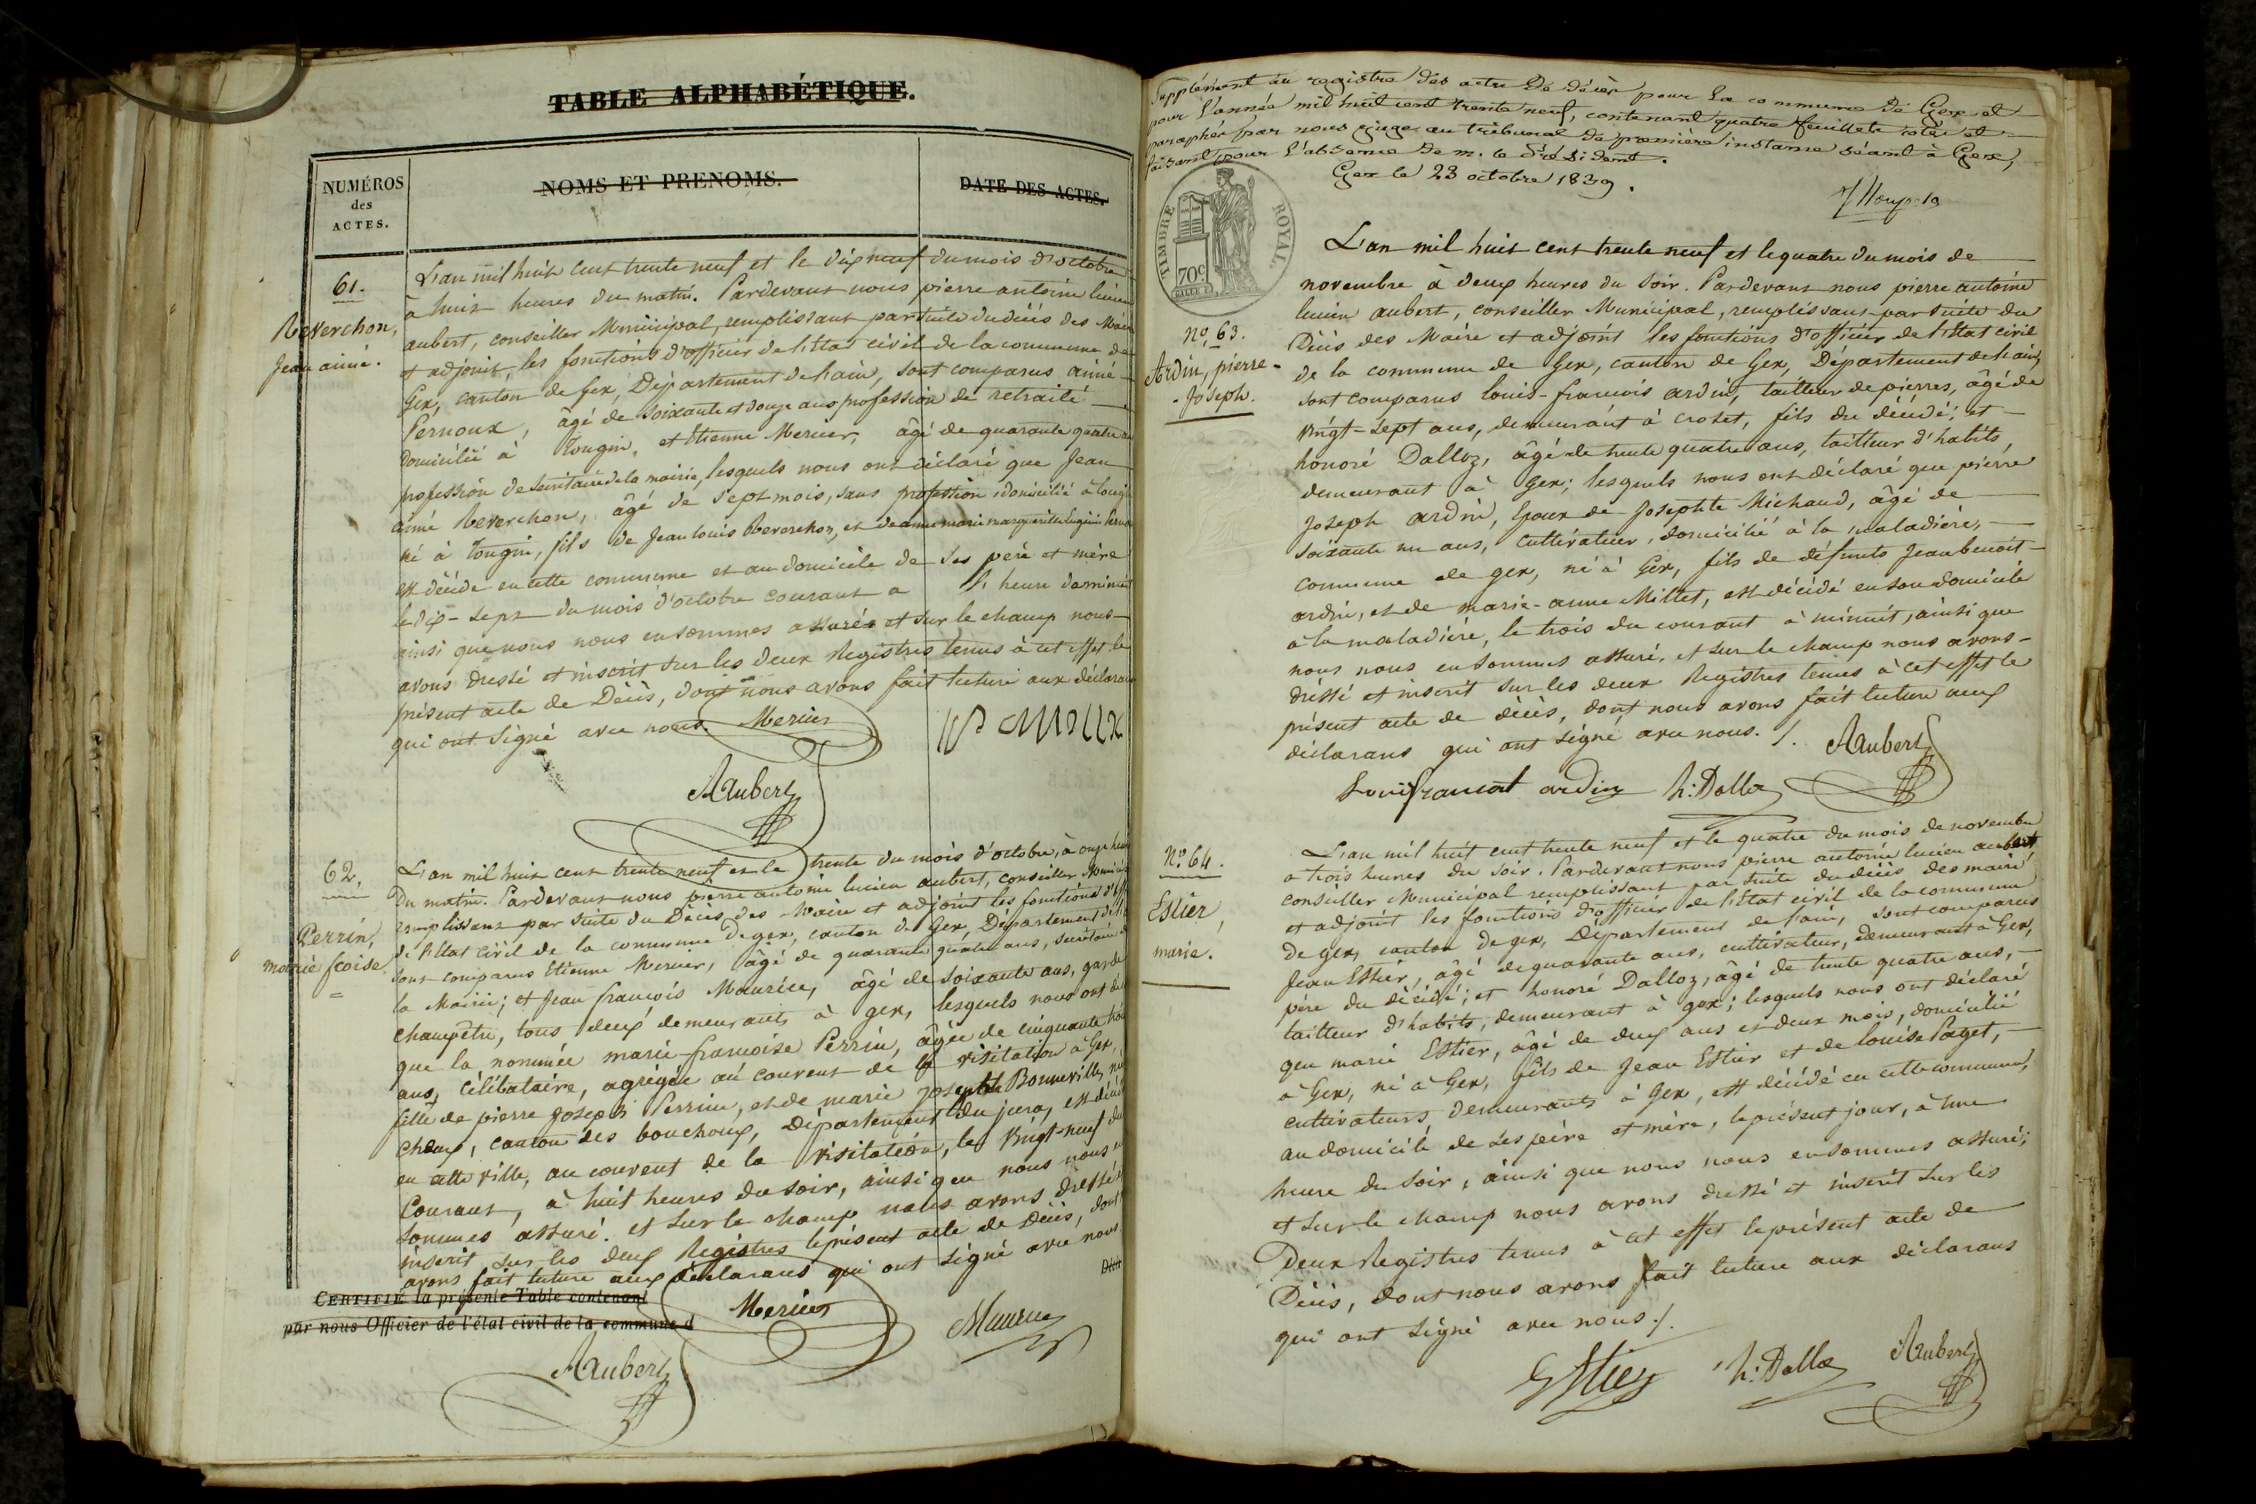 TABLE ALPHABÉTIQUE.
NUMÉROS
des
ACTES.
NOMS ET PRENOMS.
DATE DES ACTES.
61.
Reverchon,
Jean aimé.
L'an mil huit cent trente neuf et le dix neuf du mois d'octobre
à huit heures du matin. Pardevant nous pierre antoine lucien
aubert, conseiller Municipal, remplissant par suite du décès des Maire
et adjoint, les fonctions d'officier de l'état civil de la commune de
Gex, canton de Gex, Département de l'ain, sont comparus aimé
Pernoux, âgé de soixante et douze ans profession de retraité
domicilié à Tougin, et Etienne Mercier, âgé de quarante quatre ans
profession de secrétaire de la mairie, lesquels nous ont déclaré que Jean
aimé Reverchon, âgé de sept mois, sans profession, domicilié à tougin
né à tougin, fils de Jean louis Reverchon, et de anne marie marguerite Eugénie Pernoux
est décédé en cette commune et au domicile de ses père et mère
le dix-sept du mois d'octobre courant à heure
ainsi que nous nous en sommes assurés et sur le champ nous
avons dressé et inscrit sur les deux Registres tenus à cet effet le
présent acte de Décès, dont nous avons fait lecture aux déclarans
qui ont signé avec nous. Mercier
Pernoux
A Aubert
62,
Perrin,
marie fcoise.
L'an mil huit cent trente neuf et le trente du mois d'octobre, à onze heures
Du matin. Pardevant nous pierre antoine lucien aubert, conseiller Municipal
remplissant par suite du Décès des Maire et adjoint les fonctions d'off
de l'Etat civil de la commune de gex, canton de Gex, Département de l'
sont comparus Etienne Mercier, âgé de quarante quatre ans, secrétaire de
la Mairie; et Jean françois Maurice, âgé de soixante ans, garde
champêtre, tous deux demeurants à gex, lesquels nous ont dé
que la nommée marie-francoise Perrin, âgée de cinquante trois
ans, célibataire, agrégée au couvent de la visitation à Gex,
fille de pierre joseph Perrin, et de marie josephte Bonneville, née
choux, canton des bouchoux, Département du jura, est décédée
en cette ville, au couvent de la visitation, le vingt-neuf du
Courant, à huit heures du soir, ainsi que nous nous en
sommes assuré. et sur le champ nous avons dressé et
inscrit sur les deux Registres le présent acte de Décès, dont
avons fait lecture aux déclarans qui ont signé avec nous.
CERTIFIÉ la présente Table contenant
par nous Officier de l'état civil de la commune d
Mercier
Maurice
A Aubert
Supplément au registre des actes de décès pour la commune de Gex et
pour l'année mil huit cent trente neuf, contenant quatre feuillets cotés et
paraphés par nous juge au tribunal de première instance séant à Gex,
faisant pour l'absence de m. le Président.
Gex le 23 octobre 1839.
TIMBRE ROYAL.
70c
No. 63.
Ardin, pierre-
-Joseph.
L'an mil huit cent trente neuf et le quatre du mois de
novembre à deux heures du soir. Pardevant nous pierre antoine
lucien aubert, conseiller Municipal, remplissant par suite du
Décès des Maire et adjoint les fonctions d'officier de l'état civil
de la commune de Gex, canton de Gex, Département de l'ain,
sont comparus louis-francois ardin, tailleur de pierres, âgé de
vingt-sept ans, demeurant à crozet, fils du décédé; et
honoré Dalloz, âgé de trente quatre ans, tailleur d'habits,
demeurant à Gex; lesquels nous ont déclaré que pierre
Joseph ardin, Epoux de Josephte Michaud, âgé de
soixante un ans, cultivateur, domicilié à la maladière,
commune de gex, né à Gex, fils de défunts Jean benoit
ardin, et de marie-anne Millet, est décédé en son domicile
à la maladière, le trois du courant à minuit, ainsi que
nous nous en sommes assuré. et sur le champ nous avons-
dressé et inscrit sur les deux Registres tenus à cet effet le
présent acte de décès, dont nous avons fait lecture aux
déclarans qui ont signé avec nous. /. A Aubert
Louis francoi ardin h: Dalloz
No. 64.
Estier,
marie.
L'an mil huit cent trente neuf et le quatre du mois de novembre
à trois heures du soir. Pardevant nous pierre antoine lucien aubert
conseiller Municipal remplissant par suite du décès des maire
et adjoint les fonctions d'officier de l'état civil de la commune
de Gex, canton de gex, Département de l'ain, sont comparus
Jean Estier, âgé de quarante ans, cultivateur, demeurant à Gex,
père du décédé; et honoré Dalloz, âgé de trente quatre ans,
tailleur d'habits, demeurant à gex; lesquels nous ont déclaré
que marie Estier, âgé de deux ans et deux mois, domicilié
à Gex, né à Gex, fils de Jean Estier et de louise Paget,
cultivateurs demeurants à Gex, est décédé en cette commune,
au domicile de ses père et mère, le présent jour, à une
heure du soir, ainsi que nous nous en sommes assuré;
et sur le champ nous avons dressé et inscrit sur les
Deux Registres tenus à cet effet le présent acte de
Décès, dont nous avons fait lecture aux déclarans
qui ont signé avec nous /.
Estier h: Dalloz A Aubert